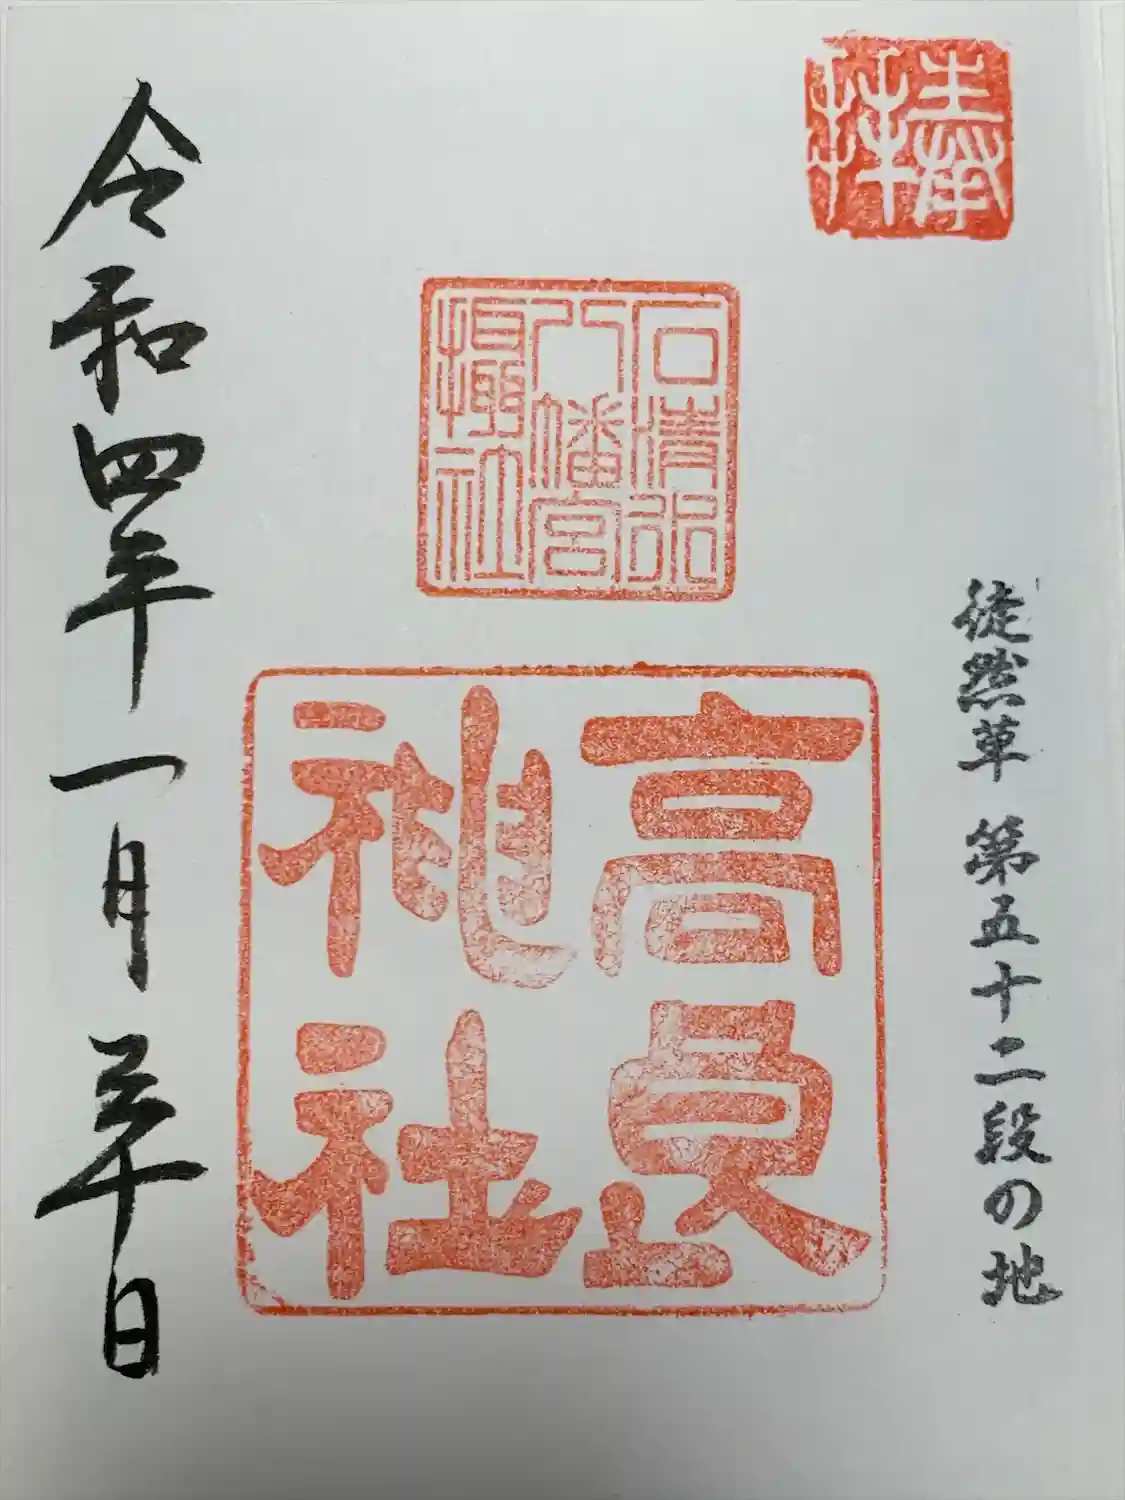 奉拝
徒然草 第五十二段の地
石清水
八幡宮
攝社
高良
神社
令和四年一月三十日